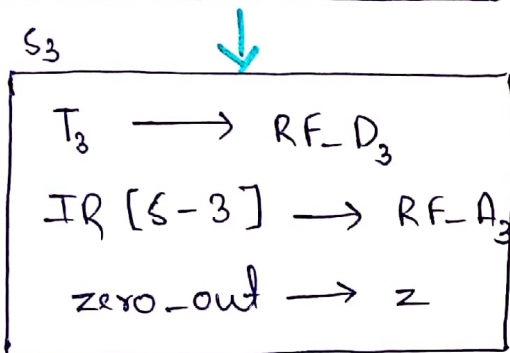 S3
T3 → RF_D3
IR [5-3] → RF_A3
zero_out → z